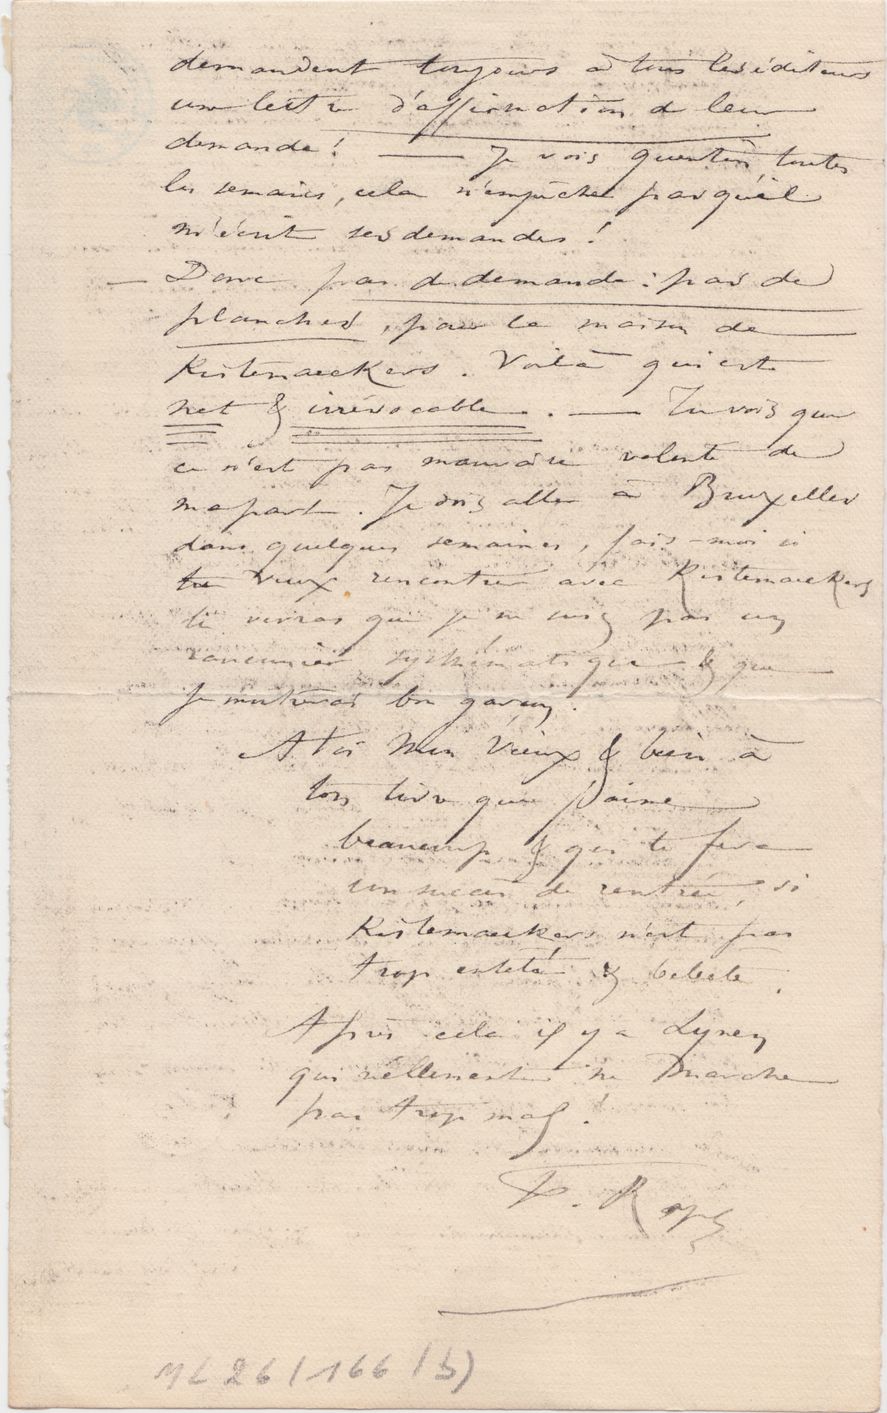 demandent toujours à tous les éditeurs
une lettre d'affirmation de leur
demande! — Je vois Quentin toutes
les semaines, cela n'empêche pas qu'il
m'écrit ses demandes!
— Donc pas de demande: pas de
planches, pour la maison de
Kistemaeckers. Voilà qui est
net & irrévocable. — Tu vois que
ce n'est pas mauvaise volonté de
ma part. Je dois aller à Bruxelles
dans quelques semaines, fais-moi si
tu veux rencontrer avec Kistemaeckers
tu verras que je ne suis pas un
rancunier systématique & que
je suis très bon garçon.
A toi mon Vieux & bien à
ton livre que j'aime
beaucoup & qui te fera
un succès de rentrée, si
Kistemaeckers n'est pas
trop entêté & bebête.
Après cela il y a Lynen
qui réellement ne marche
pas trop mal!
F. Rops
ML 26/166/5)